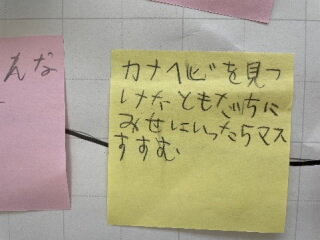 えな
カナヘビを見つ
けたともだちに
みせにいったら5マス
すすむ